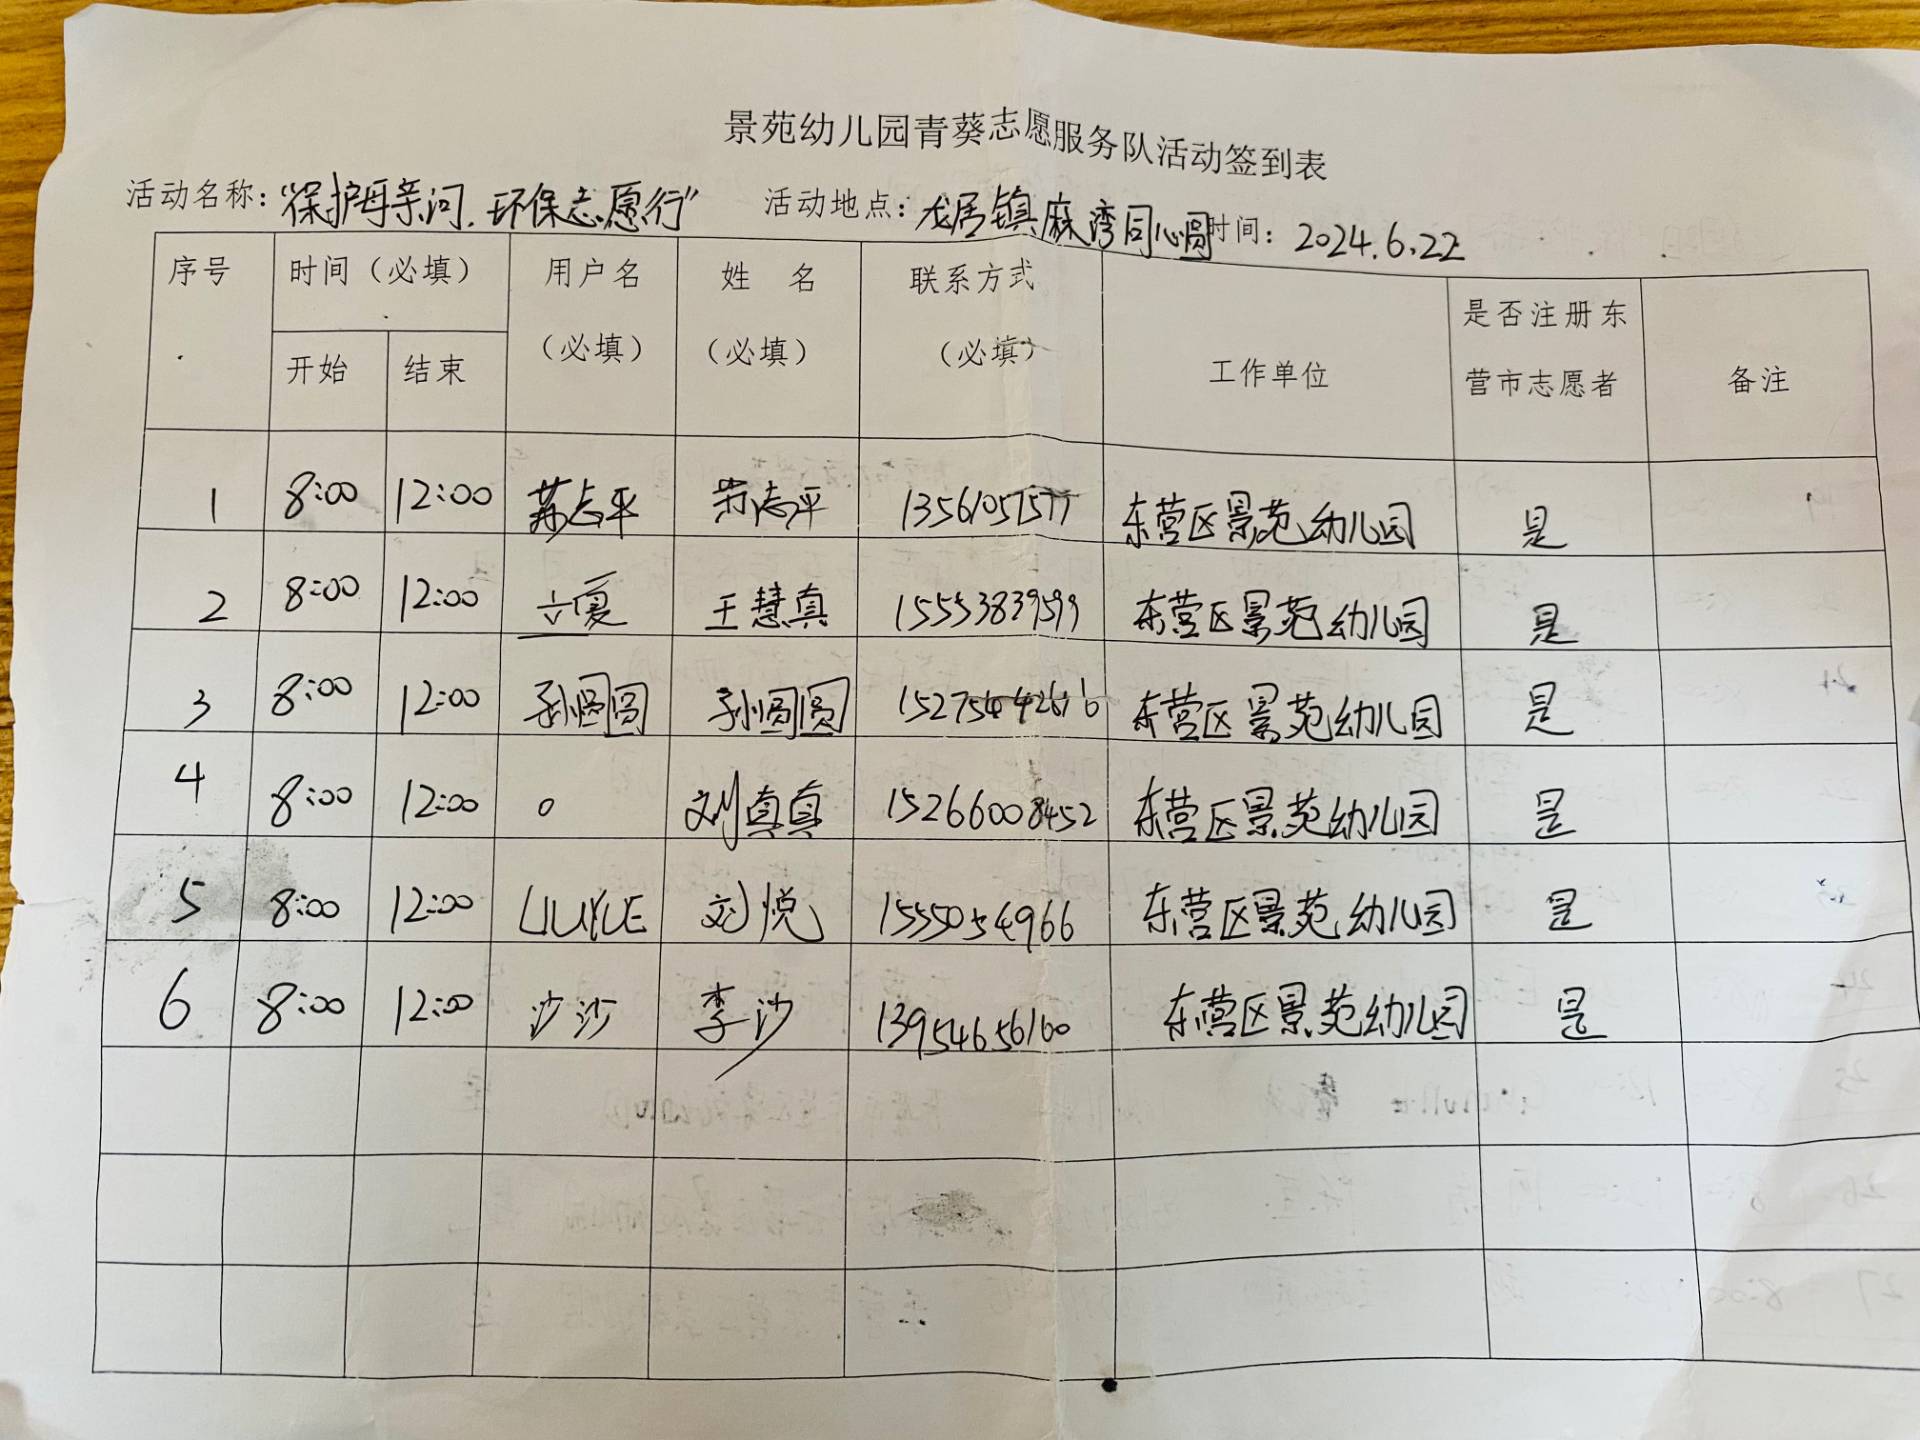 景苑幼儿园青葵志愿服务队活动签到表
活动名称：“保护母亲河，环保志愿行” 活动地点：龙居镇麻湾同心圆 时间：2024.6.22
序号 时间（必填） 用户名（必填） 姓 名（必填） 联系方式（必填） 工作单位 是否注册东营市志愿者 备注
开始 结束
1 8:00 12:00 志平 志平 13561057577 东营区景苑幼儿园 是
2 8:00 12:00 立夏 王慧真 15553839599 东营区景苑幼儿园 是
3 8:00 12:00 孙圆圆 孙圆圆 15275442616 东营区景苑幼儿园 是
4 8:00 12:00 。 刘真真 15266008452 东营区景苑幼儿园 是
5 8:00 12:00 LIUYUE 刘悦 15550534966 东营区景苑幼儿园 是
6 8:00 12:00 沙沙 李沙 13954656160 东营区景苑幼儿园 是